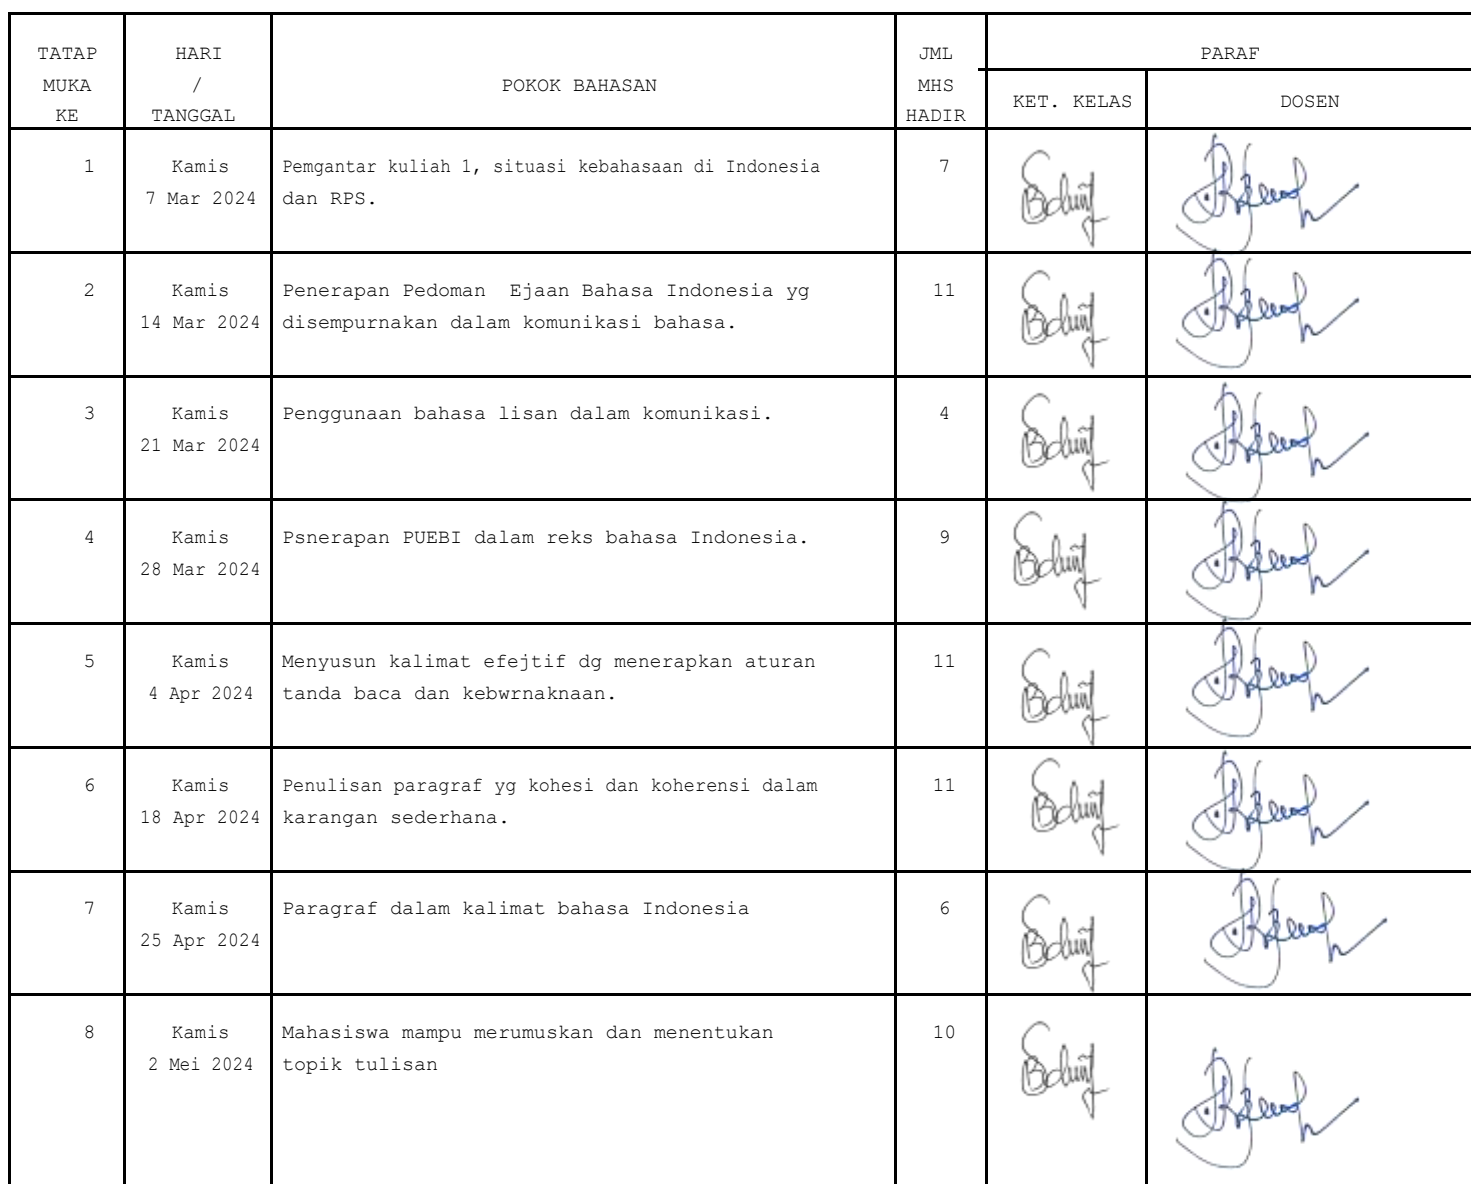 TATAP
MUKA
KE
HARI
/
TANGGAL
POKOK BAHASAN
JML
MHS
HADIR
PARAF
KET. KELAS
DOSEN
1
Kamis
7 Mar 2024
Pemgantar kuliah 1, situasi kebahasaan di Indonesia
dan RPS.
7
2
Kamis
14 Mar 2024
Penerapan Pedoman  Ejaan Bahasa Indonesia yg
disempurnakan dalam komunikasi bahasa.
11
3
Kamis
21 Mar 2024
Penggunaan bahasa lisan dalam komunikasi.
4
4
Kamis
28 Mar 2024
Psnerapan PUEBI dalam reks bahasa Indonesia.
9
5
Kamis
4 Apr 2024
Menyusun kalimat efejtif dg menerapkan aturan
tanda baca dan kebwrnaknaan.
11
6
Kamis
18 Apr 2024
Penulisan paragraf yg kohesi dan koherensi dalam
karangan sederhana.
11
7
Kamis
25 Apr 2024
Paragraf dalam kalimat bahasa Indonesia
6
8
Kamis
2 Mei 2024
Mahasiswa mampu merumuskan dan menentukan
topik tulisan
10